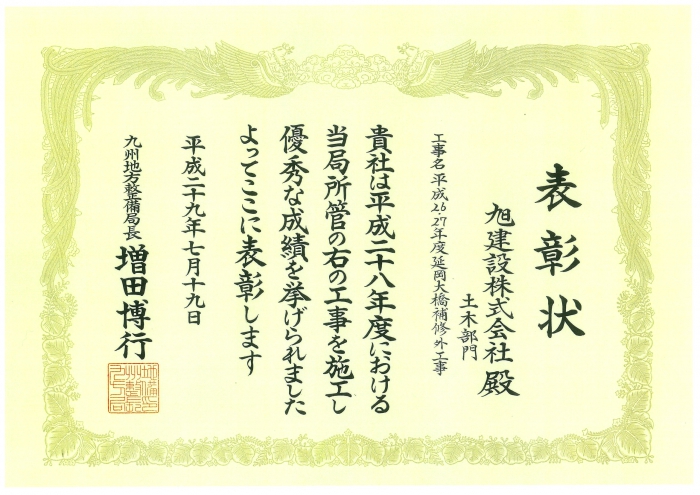 表彰状
旭建設株式会社 殿
土木部門
工事名 平成26・27年度延岡大橋補修外工事
貴社は平成二十八年度における
当局所管の右の工事を施工し
優秀な成績を挙げられました
よってここに表彰します
平成二十九年七月十九日
九州地方整備局長 増田博行